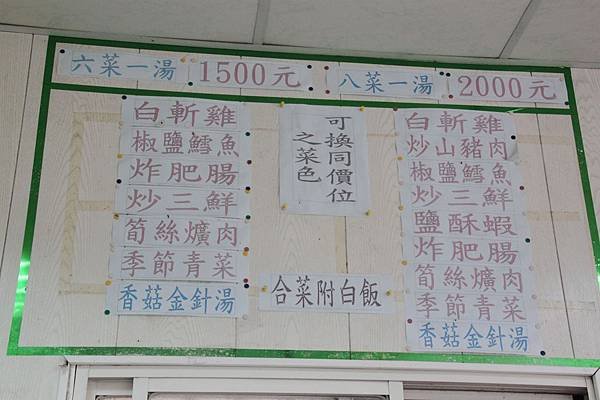 六菜一湯 1500元
白斬雞
椒鹽鱈魚
炸肥腸
炒三鮮
筍絲爌肉
季節青菜
香菇金針湯
可換同價位
之菜色
合菜附白飯
八菜一湯 2000元
白斬雞
炒山豬肉
椒鹽鱈魚
炒三鮮
鹽酥蝦
炸肥腸
筍絲爌肉
季節青菜
香菇金針湯